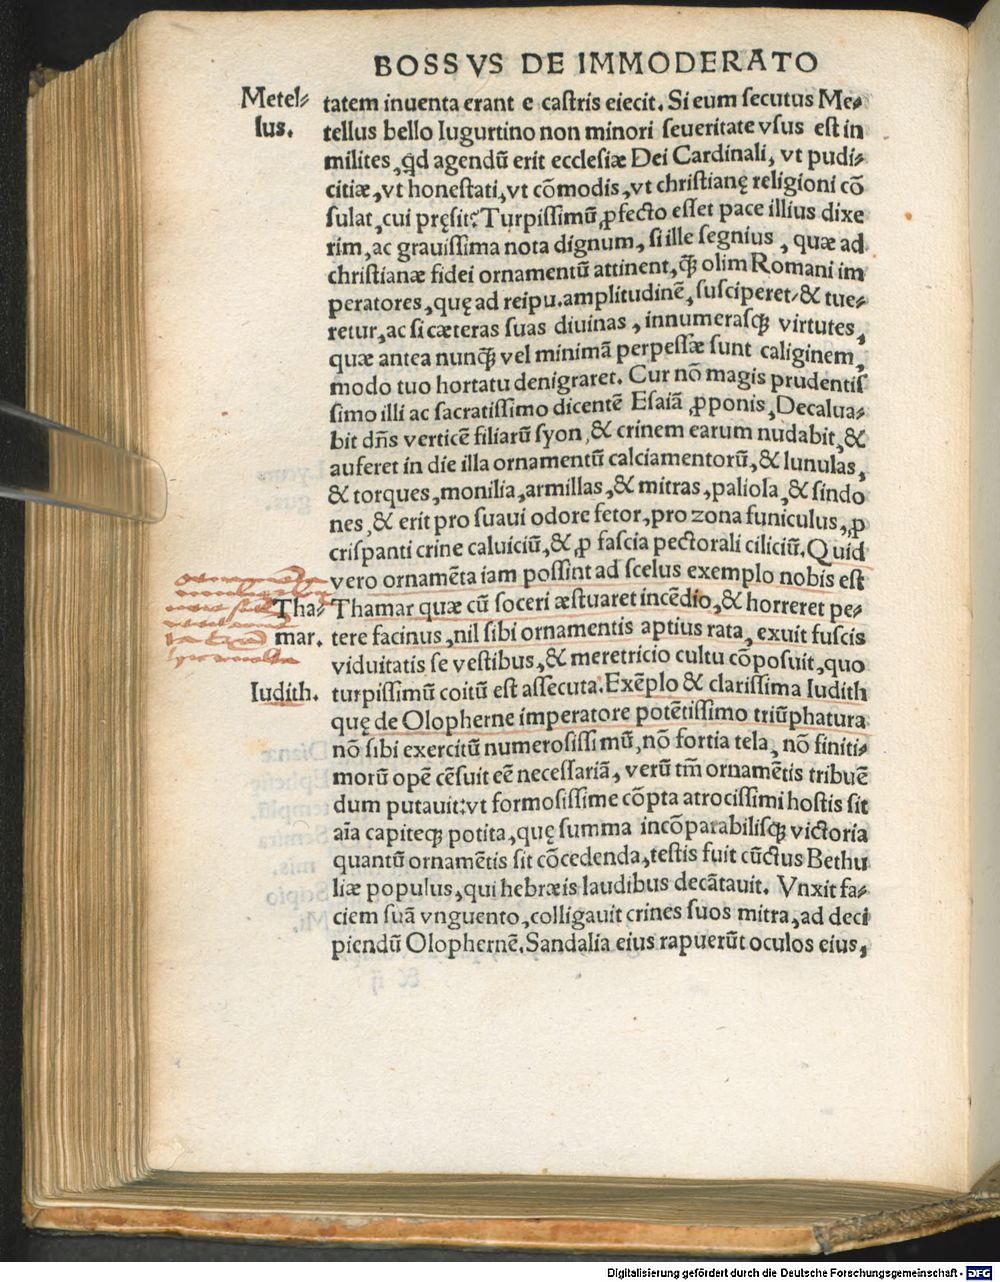 BOSSVS DE IMMODERATO
Metel⸗
lus.
tatem inuenta erant e castris eiecit. Si eum secutus Me⸗
tellus bello Iugurtino non minori seueritate vsus est in
milites, qd agendū erit ecclesiæ Dei Cardinali, vt pudi⸗
citiæ, vt honestati, vt cōmodis, vt christianę religioni cō
sulat, cui pręsit? Turpissimū, ꝓfecto esset pace illius dixe
rim, ac grauissima nota dignum, si ille segnius, quæ ad
christianæ fidei ornamentū attinent, q̄ꝫ olim Romani im
peratores, quę ad reipu. amplitudinē, susciperet, & tue⸗
retur, ac si cæteras suas diuinas, innumerasqꝫ virtutes,
quæ antea nunq̄ꝫ vel minimā perpessæ sunt caliginem,
modo tuo hortatu denigraret. Cur nō magis prudentis
simo illi ac sacratissimo dicentē Esaiā ꝓponis, Decalua⸗
bit dn̄s verticē filiarū syon, & crinem earum nudabit, &
auferet in die illa ornamentū calciamentorū, & lunulas,
& torques, monilia, armillas, & mitras, paliola, & sindo
nes, & erit pro suaui odore fetor, pro zona funiculus, ꝓ
crispanti crine caluiciū, & ꝓ fascia pectorali ciliciū. Quid
vero ornamēta iam possint ad scelus exemplo nobis est
Tha⸗
mar.
Thamar quæ cū soceri æstuaret incēdio, & horreret pe⸗
tere facinus, nil sibi ornamentis aptius rata, exuit fuscis
viduitatis se vestibus, & meretricio cultu cōposuit, quo
Iudith.
turpissimū coitū est assecuta. Exēplo & clarissima Iudith
quę de Olopherne imperatore potētissimo triūphatura
nō sibi exercitū numerosissimū, nō fortia tela, nō finiti⸗
morū opē cēsuit eē necessariā, verū tm̄ ornamētis tribuē
dum putauit: vt formosissime cōpta atrocissimi hostis sit
aīa capiteqꝫ potita, quę summa incōparabilisqꝫ victoria
quantū ornamētis sit cōcedenda, testis fuit cūctus Bethu
liæ populus, qui hebræis laudibus decātauit. Vnxit fa⸗
ciem suā vnguento, colligauit crines suos mitra, ad deci
piendū Olophernē. Sandalia eius rapuerūt oculos eius,
Digitalisierung gefördert durch die Deutsche Forschungsgemeinschaft - DFG